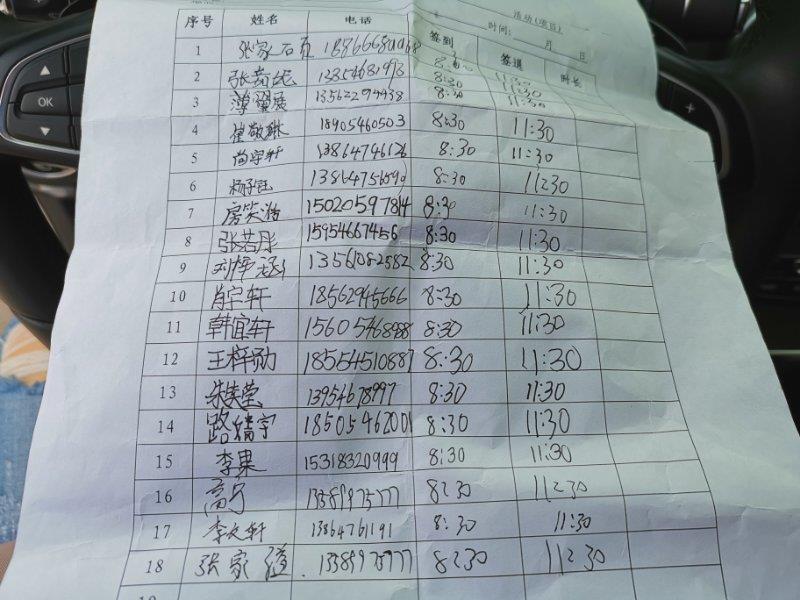 活动(项目)
时间: 月 日
序号 姓名 电话 签到 签退 时长
OK
1 8:30
2 张若 8:30 11:30
3 13562294438 8:30 11:30
4 崔敬 18905460503 8:30 11:30
5 尚宇轩 13864746126 8:30 11:30
6 杨子 13864756590 8:30 11:30
7 房笑 15020597814 8:30 11:30
8 张若彤 15954667456 8:30 11:30
9 刘梓涵 13561082582 8:30 11:30
10 肖宇轩 18562945666 8:30 11:30
11 韩宜轩 15605468988 8:30 11:30
12 王梓勋 18554510887 8:30 11:30
13 朱美莹 13954678997 8:30 11:30
14 路 宇 18505462001 8:30 11:30
15 李果 15318320999 8:30 11:30
16 高 13589975777 8:30 11:30
17 李 轩 13864761191 8:30 11:30
18 张家 13589975777 8:30 11:30